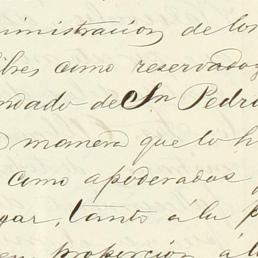 ministracion de los
libres como reservados
ndado de Sn Pedro
manera que lo h
como apoderados
gar, tanto á la p
en proporcion á l